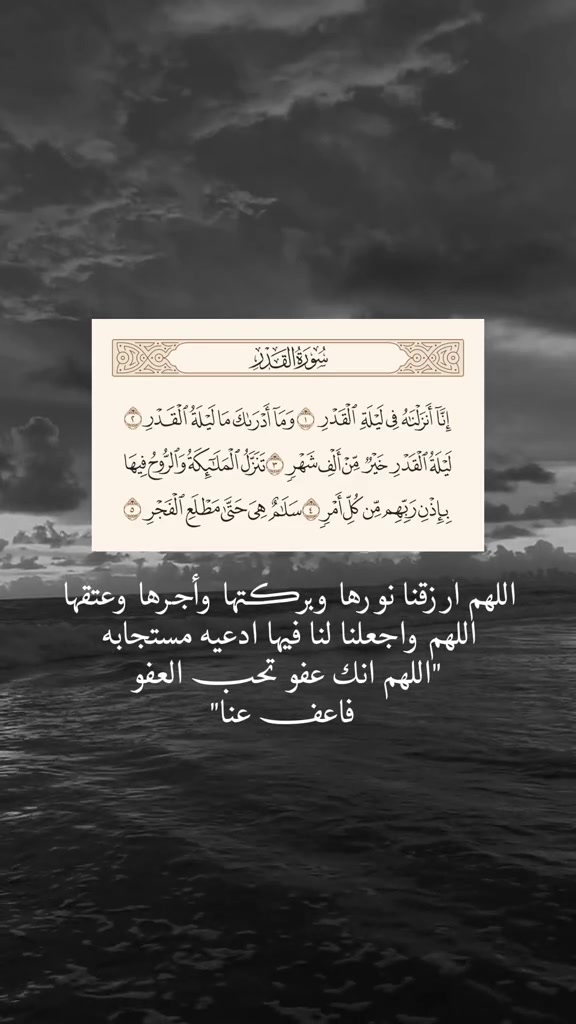 سُورَةُ القَدۡرِ
إِنَّآ أَنزَلۡنَٰهُ فِي لَيۡلَةِ ٱلۡقَدۡرِ ١ وَمَآ أَدۡرَىٰكَ مَا لَيۡلَةُ ٱلۡقَدۡرِ ٢
لَيۡلَةُ ٱلۡقَدۡرِ خَيۡرٞ مِّنۡ أَلۡفِ شَهۡرٖ ٣ تَنَزَّلُ ٱلۡمَلَٰٓئِكَةُ وَٱلرُّوحُ فِيهَا
بِإِذۡنِ رَبِّهِم مِّن كُلِّ أَمۡرٖ ٤ سَلَٰمٌ هِيَ حَتَّىٰ مَطۡلَعِ ٱلۡفَجۡرِ ٥
اللهم ارزقنا نورها وبركتها وأجرها وعتقها
اللهم واجعلنا لنا فيها ادعيه مستجابه
"اللهم انك عفو تحب العفو
فاعف عنا"